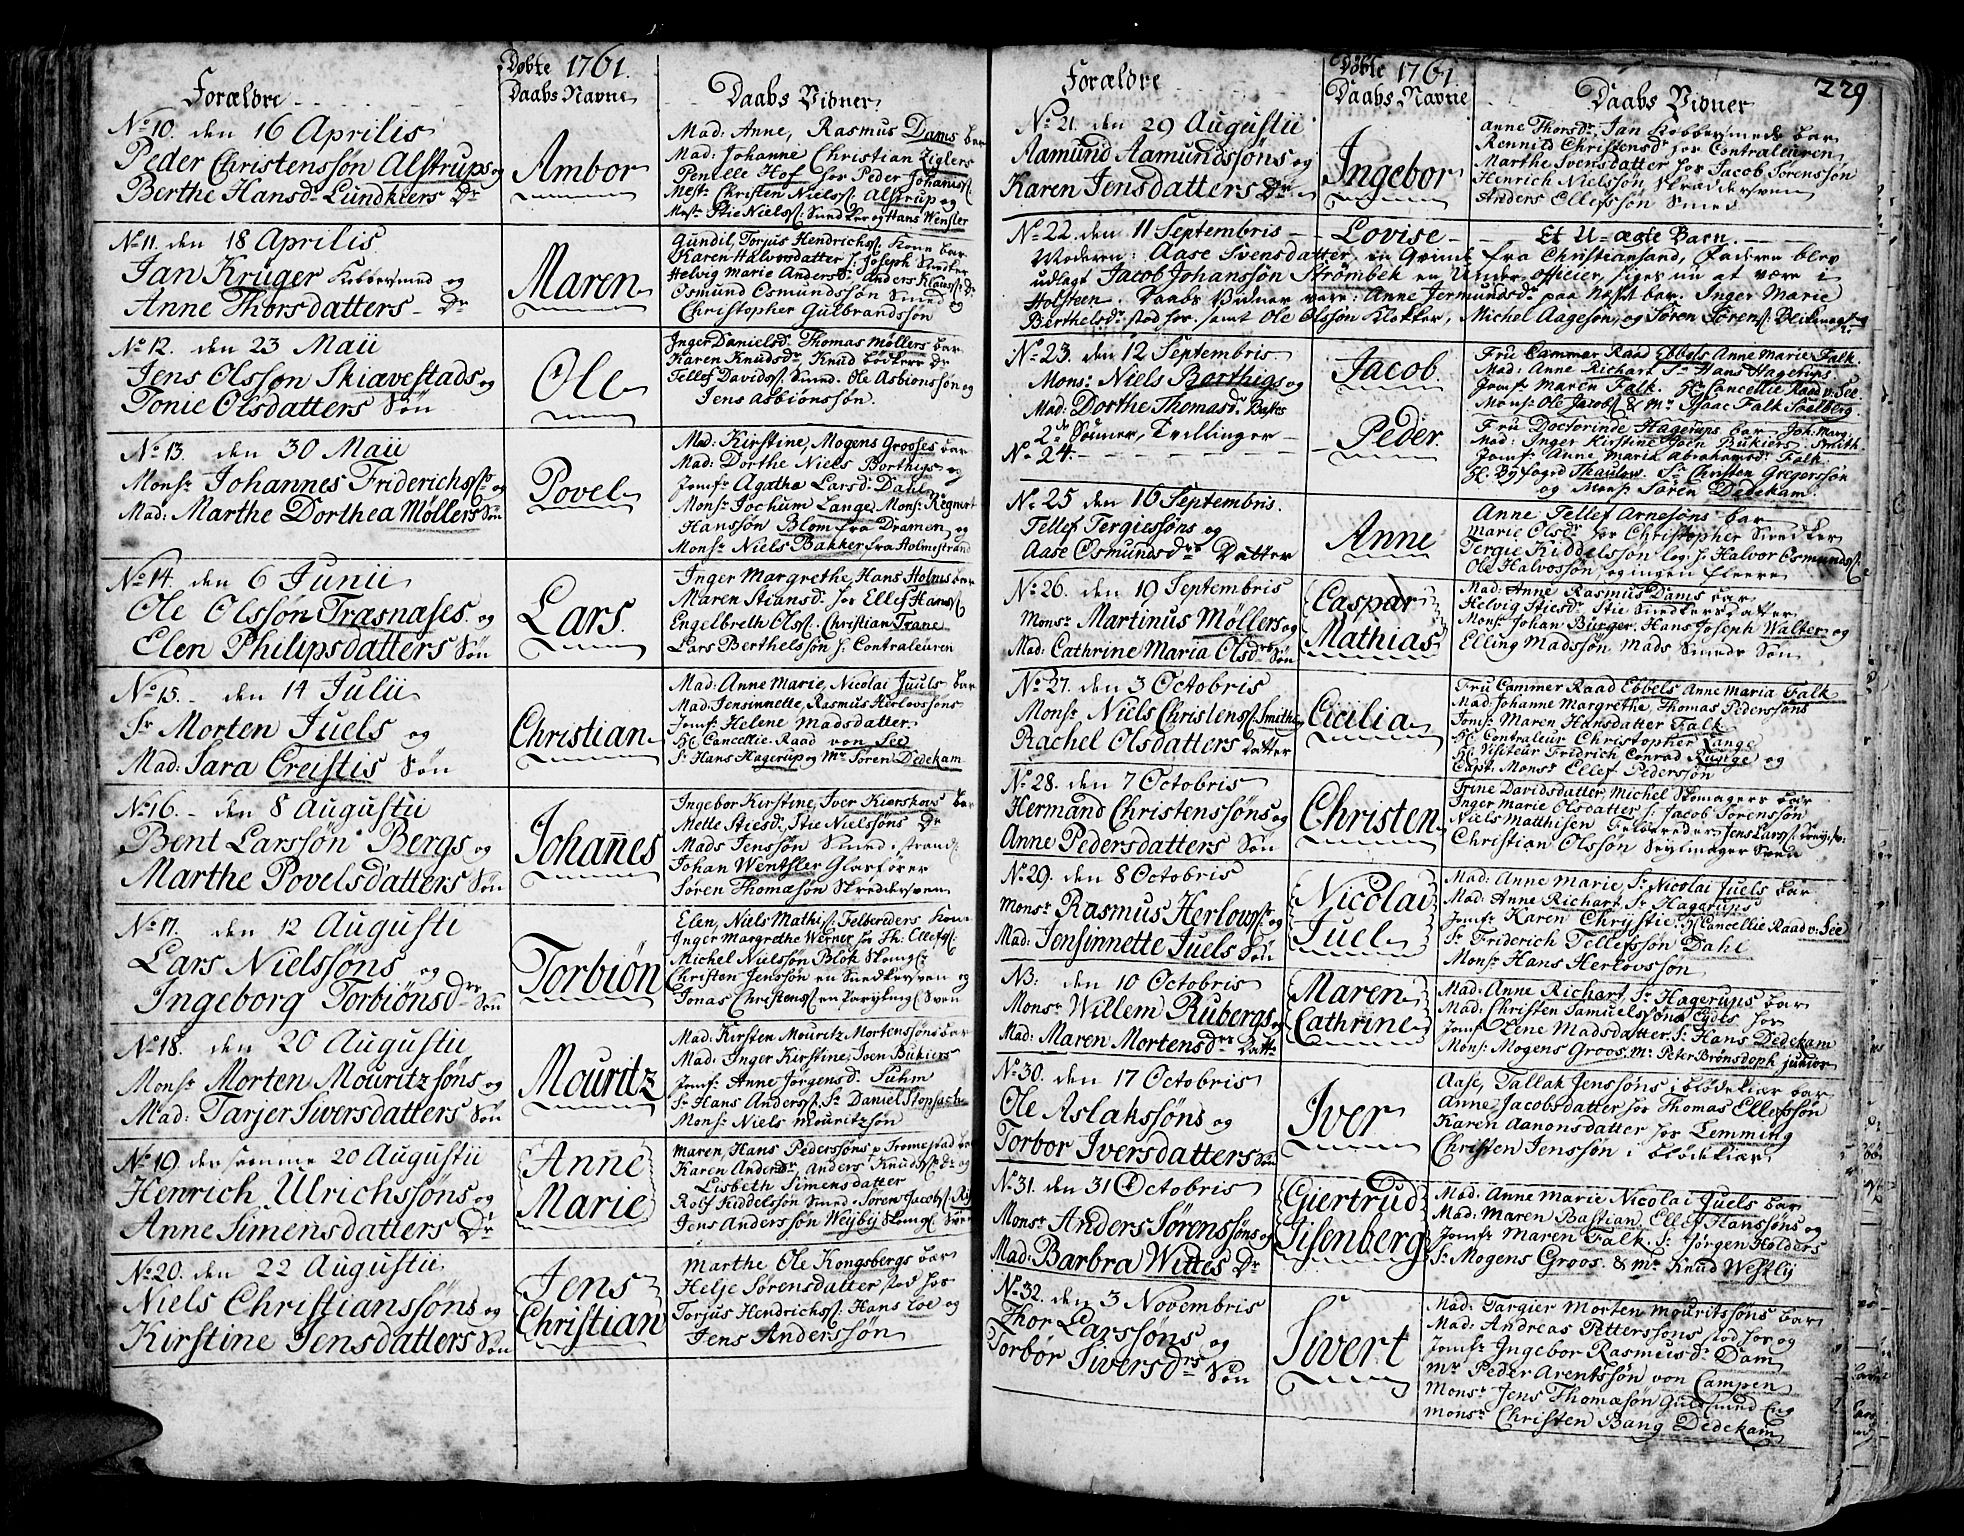 Døbte 1761.
Forældre
Daabs Navne
Daabs Vidner
No 10. den 16 Aprilis
Peder Christenssøn Alstrups og
Berthe Hansd: Lundkiers Dr
Ambor
Mad: Anne, Rasmus Dams bar
Mad: Johanne Christian Ziglers
Pentelle Hof for Peder Johanss:
Mestr Christen Nielss: Alstrup og
Mestr Stie Nielss: Snedker og Hans Wensler
No 11. den 18 Aprilis
Jan Krüger Kobbersmed og
Anne Thorsdatters Dr
Maren
Gundil, Torjus Hendrichs: Kone bar
Karen Halvorsdatter f: Joseph Snedker
Helvig Marie Andersd: Anders Klauss: Dr
Osmund Osmundssøn Smed og
Christopher Gulbrandssøn
No 12. den 23 Maii
Jens Olssøn Skiævestads og
Tonie Olsdatters Søn
Ole
Inger Danielsd: Thomas Møllers bar
Karen Knudsdr Knud Bødkers Dr
Tellef Davidss: Smed. Ole Asbiønssøn og
Jens Asbiønssøn.
No 13. den 30 Maii
Monsr Johannes Friderichss: og
Mad: Marthe Dorthea Møllers Søn
Povel
Mad: Kirstine, Mogens Grooses bar
Mad: Dorthe Niels Borthigs og
Jomfr Agatha Larsd: Dahl
Monsr Jochum Lange, Monsr Regnert
Hanssøn Blom fra Dramen, og
Monsr Niels Bakker fra Holmestrand
No 14. den 6 Junii
Ole Olssøn Trasnases og
Elen Philipsdatters Søn
Lars.
Inger Margrethe, Hans Holms bar
Maren Stiansd. for Ellef Hanss:
Engelbreth Olss: Christian Trane
Lars Berthelssøn f: Contraleuren
No 15. den 14 Julii
Sr Morten Juels og
Mad: Sara Creistis Søn
Christian
Mad: Anne Marie, Nicolai Juuls bar
Mad: Jensinnette, Rasmus Herlovssøns
Jomfr Helene Madsdatter
Hr Cancellie-Raad von See
Sr Hans Hagerup og Mr Søren Dedekam
No 16. den 8 Augustii
Bent Larssøn Bergs og
Marthe Povelsdatters Søn
Johannes
Ingebor Kirstine, Iver Kierskovs bar
Mette Stiesd: Stie Nielssøns Dr
Mads Jenssøn Smed i Strand:
Johan Wentsler Glasfører
Søren Thomæsøn Skredersven
No 17. den 12 Augusti
Lars Nielssøns og
Ingeborg Torbiønsdrs Søn
Torbiön
Elen, Niels Mathis: Feltbereders Kone
Inger Margrethe Werner for Th: Ellefs:
Michel Nielssøn Blok Skomgr
Christen Jenssøn en Snedkersven og
Jonas Christenss: en Parykmgr Sven
No 18. den 20 Augustii
Monsr Morten Mouritzsøns og
Mad: Tarjer Siversdatters Søn
Mouritz
Mad: Kirsten Mouritz Mortenssøns bar
Mad: Inger Kirstine, Joen Bukiers
Jomfr Anne Jørgensd. Suhm
Sr Hans Anderss: Sr Daniel Stopsack
Monsr Niels Mouritzsøn
No 19. den samme 20 Augustii
Henrich Ulrichssøns og
Anne Simensdatters Dr
Anne
Marie
Maren, Hans Pederssøns p: Tromestad bar
Karen Andersdr, Anders Knudss: Dr og
Lisbeth Simensdatter
Rolf Kiddelssøn Smed. Søren Jacobs:
Jens Anderssøn Weyby Skomgr Sven
No 20. den 22 Augustii
Niels Christianssøns og
Kirstine Jensdatters Søn
Jens
Christian
Marthe Ole Kongsbergs bar
Helje Sørensdatter stod hos
Torjus Hendrichss: Hans Loe og
Jens Anderssøn
229
Døbte 1761
Forældre
Daabs Navne
Daabs Vidner
No 21. den 29 Augustii
Aamund Aamundssøns og
Karen Jensdatters Dr
Ingebor
Anne Thorsdr, Jan Kobbersmeds bar
Rennild Christensdr for Contraleuren
Marthe Svensdatter for Jacob Sørenssøn
Henrich Nielssøn Skræddersven
Anders Ellefssøn Smed
No 22. den 11 Septembris
Lovise
Et U-ægte Barn.
Moderen: Aase Svensdatter, en Qvinde fra Christiansand, Faderen blev
udlagt Jacob Johanssøn Strømbek en Under officier, siges nu at være i
Holsteen. Daabs Vidner vare: Anne Jermundsdr paa Næst bar. Inger Marie
Berthelsdr stod hos. samt Ole Olssøn Klokker, Michel Aagesøn, og Søren Sørens:
No 23. den 12 Septembris.
Monsr Niels Borthigs og
Mad: Dorthe Thomasdr Bastes
2de Sønner, Tvillinger
No 24.
Jacob
Peder.
Fru Cammer Raad Ebbels Anne Marie Falk.
Mad: Anne Richart Sr Hans Hagerups
Jomfr Maren Falk. Hr Cancellie Raad v: See
Monsr Ole Jacobs: & Mr Isaac Falk Soelberg
Fru Doctorinde Hagerups bar Joh: Marg:
Mad: Inger Kirstine Joen Bukiers. Smith.
Jomfr Anne Maria Abrahamsdr Falk
Hr Byfoged Thaulow. Sr Christen Gregerssøn
og Monsr Søren Dedekam.
No 25 den 16 Septembris.
Tellef Tergiessøns og
Aase Osmundsdrs Datter
Anne
Anne Tellef Arnesøns bar
Marie Olsdr for Christopher Snedker
Tergie Kiddelssøn log: h: Halvor Osmundss:
Ole Halvorssøn, og ingen fleere
No 26. den 19 Septembris
Monsr Martinus Møllers og
Mad: Cathrine Maria Olsdrs Søn
Caspar
Mathias
Mad: Anne Rasmus Dams bar
Helvig Stiesdr Stie Snedkers Datter
Monsr Johan Bürger. Hans Joseph Walter og
Elling Madssøn, Mads Smeds Søn
No 27. den 3 Octobris
Monsr Niels Christenss: Smiths og
Rachel Olsdatters Datter
Cicilia
Fru Cammer Raad Ebbels Anne Maria Falk
Mad: Johanne Margrethe, Thomas Pederssøns
Jomfr Maren Hansdatter Falk
Hr Contraleur Christopher Lange
Hr Visiteur Fridrich Conrad Runge og
Capt: Monsr Ellef Pederssøn
No 28. den 7 Octobris
Hermand Christenssøns og
Anne Pedersdatters Søn
Christen
Trine Davidsdatter, Michel Skomagers bar
Inger Marie Olsdatter f: Jacob Sørenssøn
Niels Matthisen Feltbereder
Christian Olssøn Seylmager Sven
No 29. den 8 Octobris
Monsr Rasmus Herlovss: og
Mad: Jensinnette Juels Søn
Nicolai
Juel
Mad: Anne Marie, Sr Nicolai Juels bar
Mad: Anne Richart, Sr Hagerups
Jomfr Karen Chrystie. Hr Cancellie Raad v: See
Sr Friderich Tellefssøn Dahl
Monsr Hans Herlovssøn
N3: den 10 Octobris
Monsr Willem Rubergs og
Mad: Maren Mortensdrs Dattr
Maren
Cathrine
Mad: Anne Richart Sr Hagerups bar
Mad: Christen Samuelssøns Egdes hos
Jomfr Lene Madsdatter. Sr Hans Dedekam
Monsr Mogens Groos. Mr Peter Brønsdoph junior
No 30. den 17 Octobris
Ole Aslakssøns og
Torbor Iversdatters Søn
Iver
Aase, Tallak Jenssøns i blødekiær bar
Anne Jacobsdatter for Thomas Ellefssøn
Karen Aanonsdatter hos Lemming
Christen Jenssøn i blødekiær
No 31. den 31 Octobris
Monsr Anders Sørenssøns og
Mad: Barbra Wittes Dr
Giertrud
Sisenberg
Mad: Anne Marie Nicolai Juels bar
Mad: Maren Bastian, Ellef Hanssøns og
Jomfr Maren Falk. Sr Jørgen Holders
Sr Mogens Groos. & Mr Knud Westly
No 32. den 3 Novembris
Thor Larssøns og
Torbør Siversdrs Søn
Sivert
Mad: Targier Morten Mouritssøns bar
Mad: Andreas Petterssøns stod hos og
Jomfr Ingebor Rasmusdr Dam
Mr Peder Arentssøn von Campen
Monsr Jens Thomæsøn Guldsmed Eng
Monsr Christen Bang Dedekam